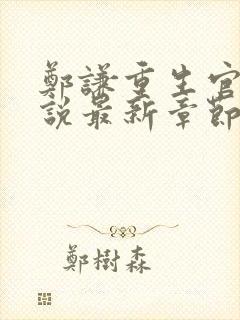 鄭謙重生官
說最新章節
鄭樹森